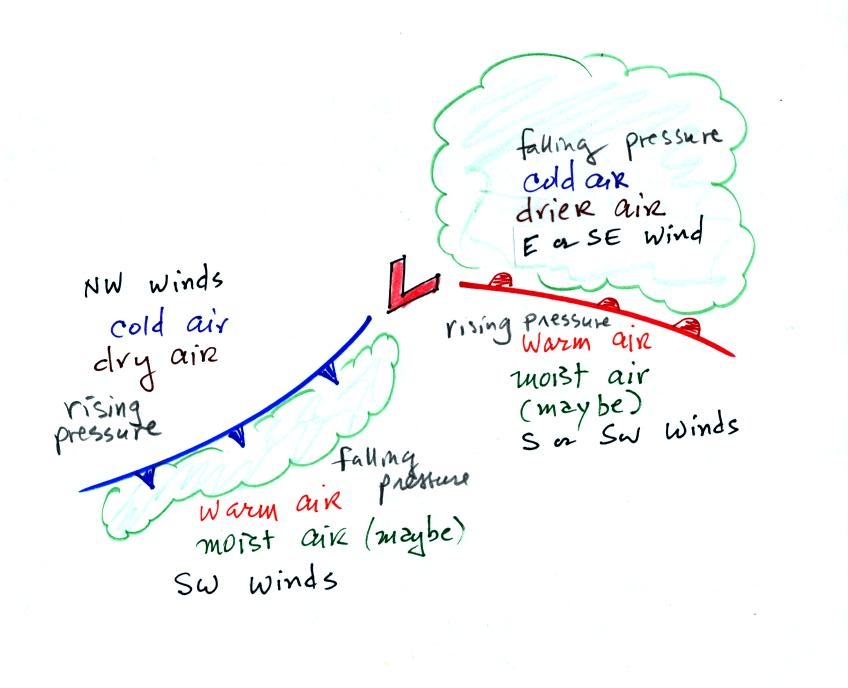 falling pressure
cold air
drier air
E or SE wind
L
NW winds
cold air
dry air
rising
pressure
rising pressure
warm air
moist air
(maybe)
S or SW winds
falling
pressure
warm air
moist air (maybe)
SW winds